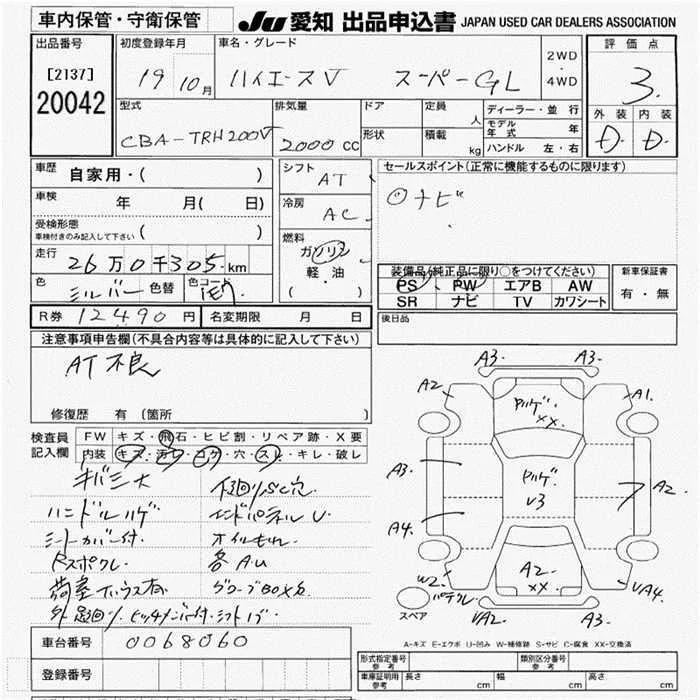 車内保管・守衛保管
JU 愛知 出品申込書 JAPAN USED CAR DEALERS ASSOCIATION
出品番号
[2137]
20042
初度登録年月
19 10月
車名・グレード
ハイエースV スーパーGL
2WD
・
4WD
評価点
3.
外装 内装
D D
型式
CBA-TRH200V
排気量
2000 cc
ドア
形状
定員
人
積載
kg
ディーラー・並行
モデル年式 年
ハンドル 左・右
車歴
自家用・( )
車検
年 月( 日)
受検形態
車検付きのみ記入して下さい ( )
走行
26万0千305km
色
シルバー
色替
色コード
1E7
シフト
AT
冷房
AC
燃料
ガソリン
軽・油
( ・ )
セールスポイント(正常に機能するものに限ります)
◎ナビ
装備品(純正品に限り○をつけてください)
PS PW エアB AW
SR ナビ TV カワシート
新車保証書
有・無
R券 12490円
名変期限 月 日
後日品
注意事項申告欄(不具合内容等は具体的に記入して下さい)
AT不良
修復歴 有 (箇所 )
検査員記入欄
FW キズ・飛石・ヒビ割・リペア跡・X要
内装 キズ・汚レ・コゲ・穴・スレ・キレ・破レ
キバミ大
ハンドルハゲ
シートカバー付
エンドパネルU
オイルもれ
各A.U
A3. A3.
A2 A1.
ハゲ.
XX.
A3.
ハゲ.
V3
A2.
A4.
A2
XX.
W2 VA4.
スペア
VA2 A3.
A-キズ E-エクボ U-凹み W-補修跡 S-サビ C-腐食 XX-交換済
車台番号 0068060
登録番号
形式指定番号
参考
類別区分番号
参考
車庫証明用
参考
長さ cm 幅 cm 高さ cm